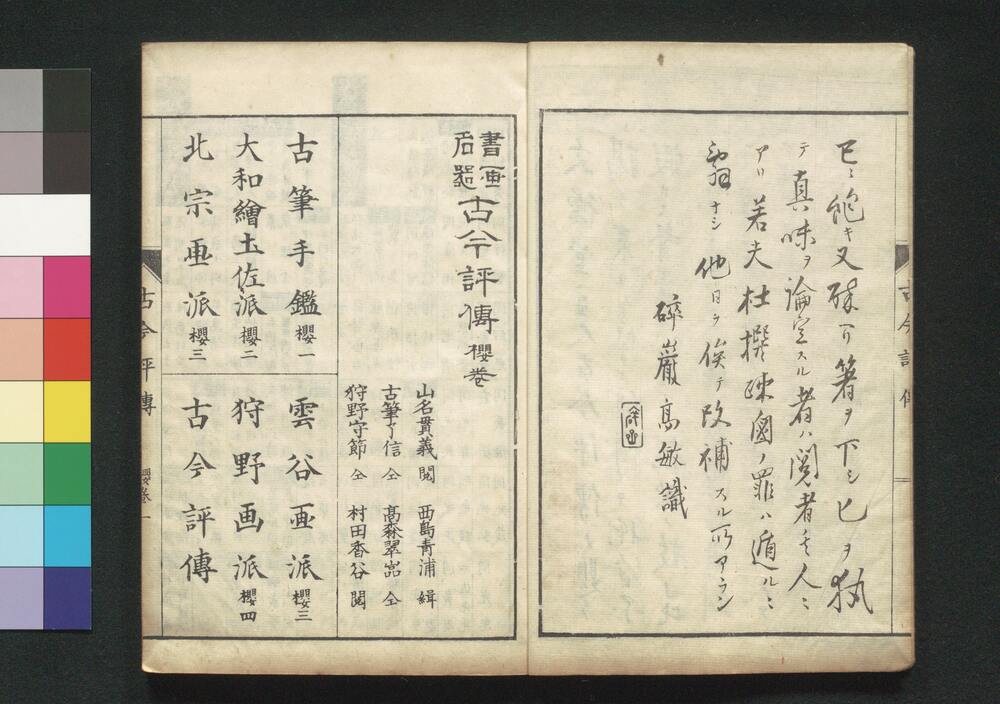 已ニ飽キ又殊ニ箸ヲ下シ匕ヲ執
テ真味ヲ論定スル者ハ閲者其人ニ
アリ若夫杜撰疎ノ罪ハ遁ルニ
ナシ他日ヲ俟テ改補スル所アラン
碎巌高敏識
書画
名器
古今評傳櫻巻
山名貫義閲 西島青浦緝
古筆了信仝 髙森翠嵒仝
狩野守節仝 村田香谷閲
古筆手鑑櫻一
大和繪土佐派櫻二
北宗画派櫻三
雲谷画派櫻三
狩野画派櫻四
古今評傳
古今評傳
櫻巻一
古今評傳